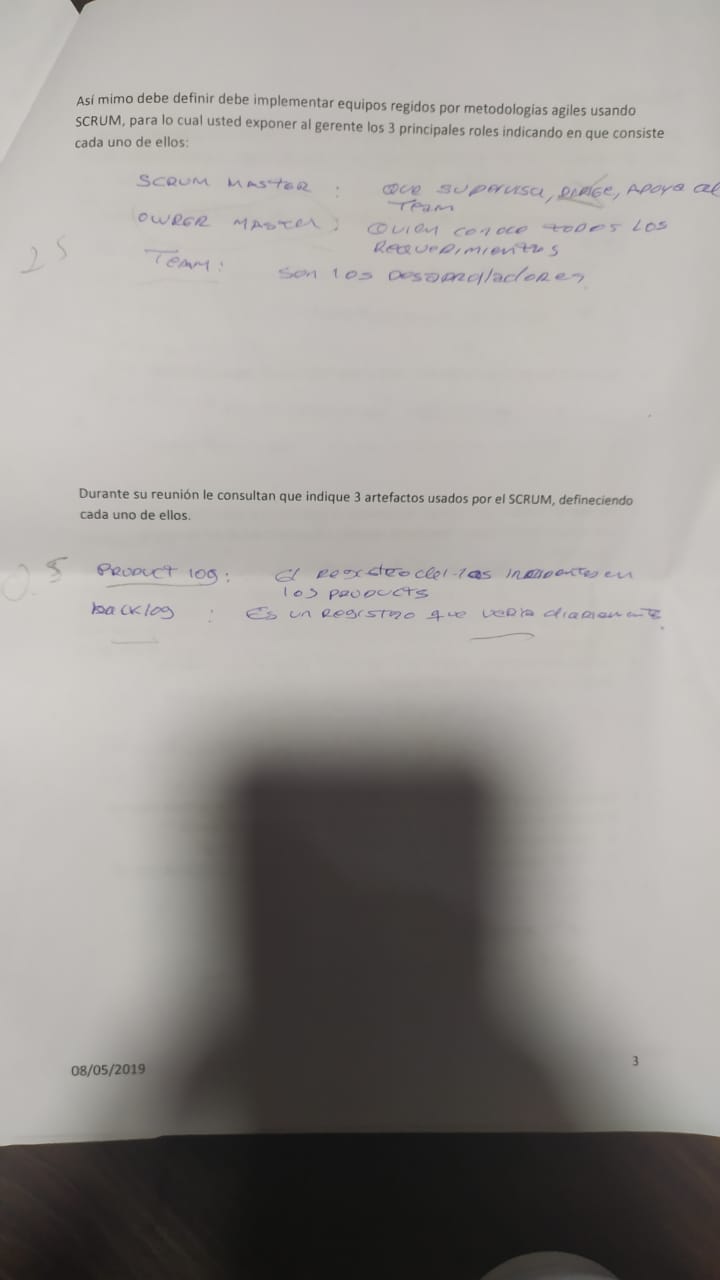 Así mimo debe definir debe implementar equipos regidos por metodologías agiles usando
SCRUM, para lo cual usted exponer al gerente los 3 principales roles indicando en que consiste
cada uno de ellos:
SCRUM MASTER : QUE SUPERVISA, DIRIGE, APOYA al
TEAM
OWRER MASTER : QUIEN CONOCE TODOS LOS
REQUERIMIENTOS
25
TEAM : SON LOS DESARROLLADORES
Durante su reunión le consultan que indique 3 artefactos usados por el SCRUM, defineciendo
cada uno de ellos.
0.5
PRODUCT LOG : El REGISTRO del las en
LOS PRODUCTS
backlog : Es un REGISTRO que diariamente
08/05/2019
3